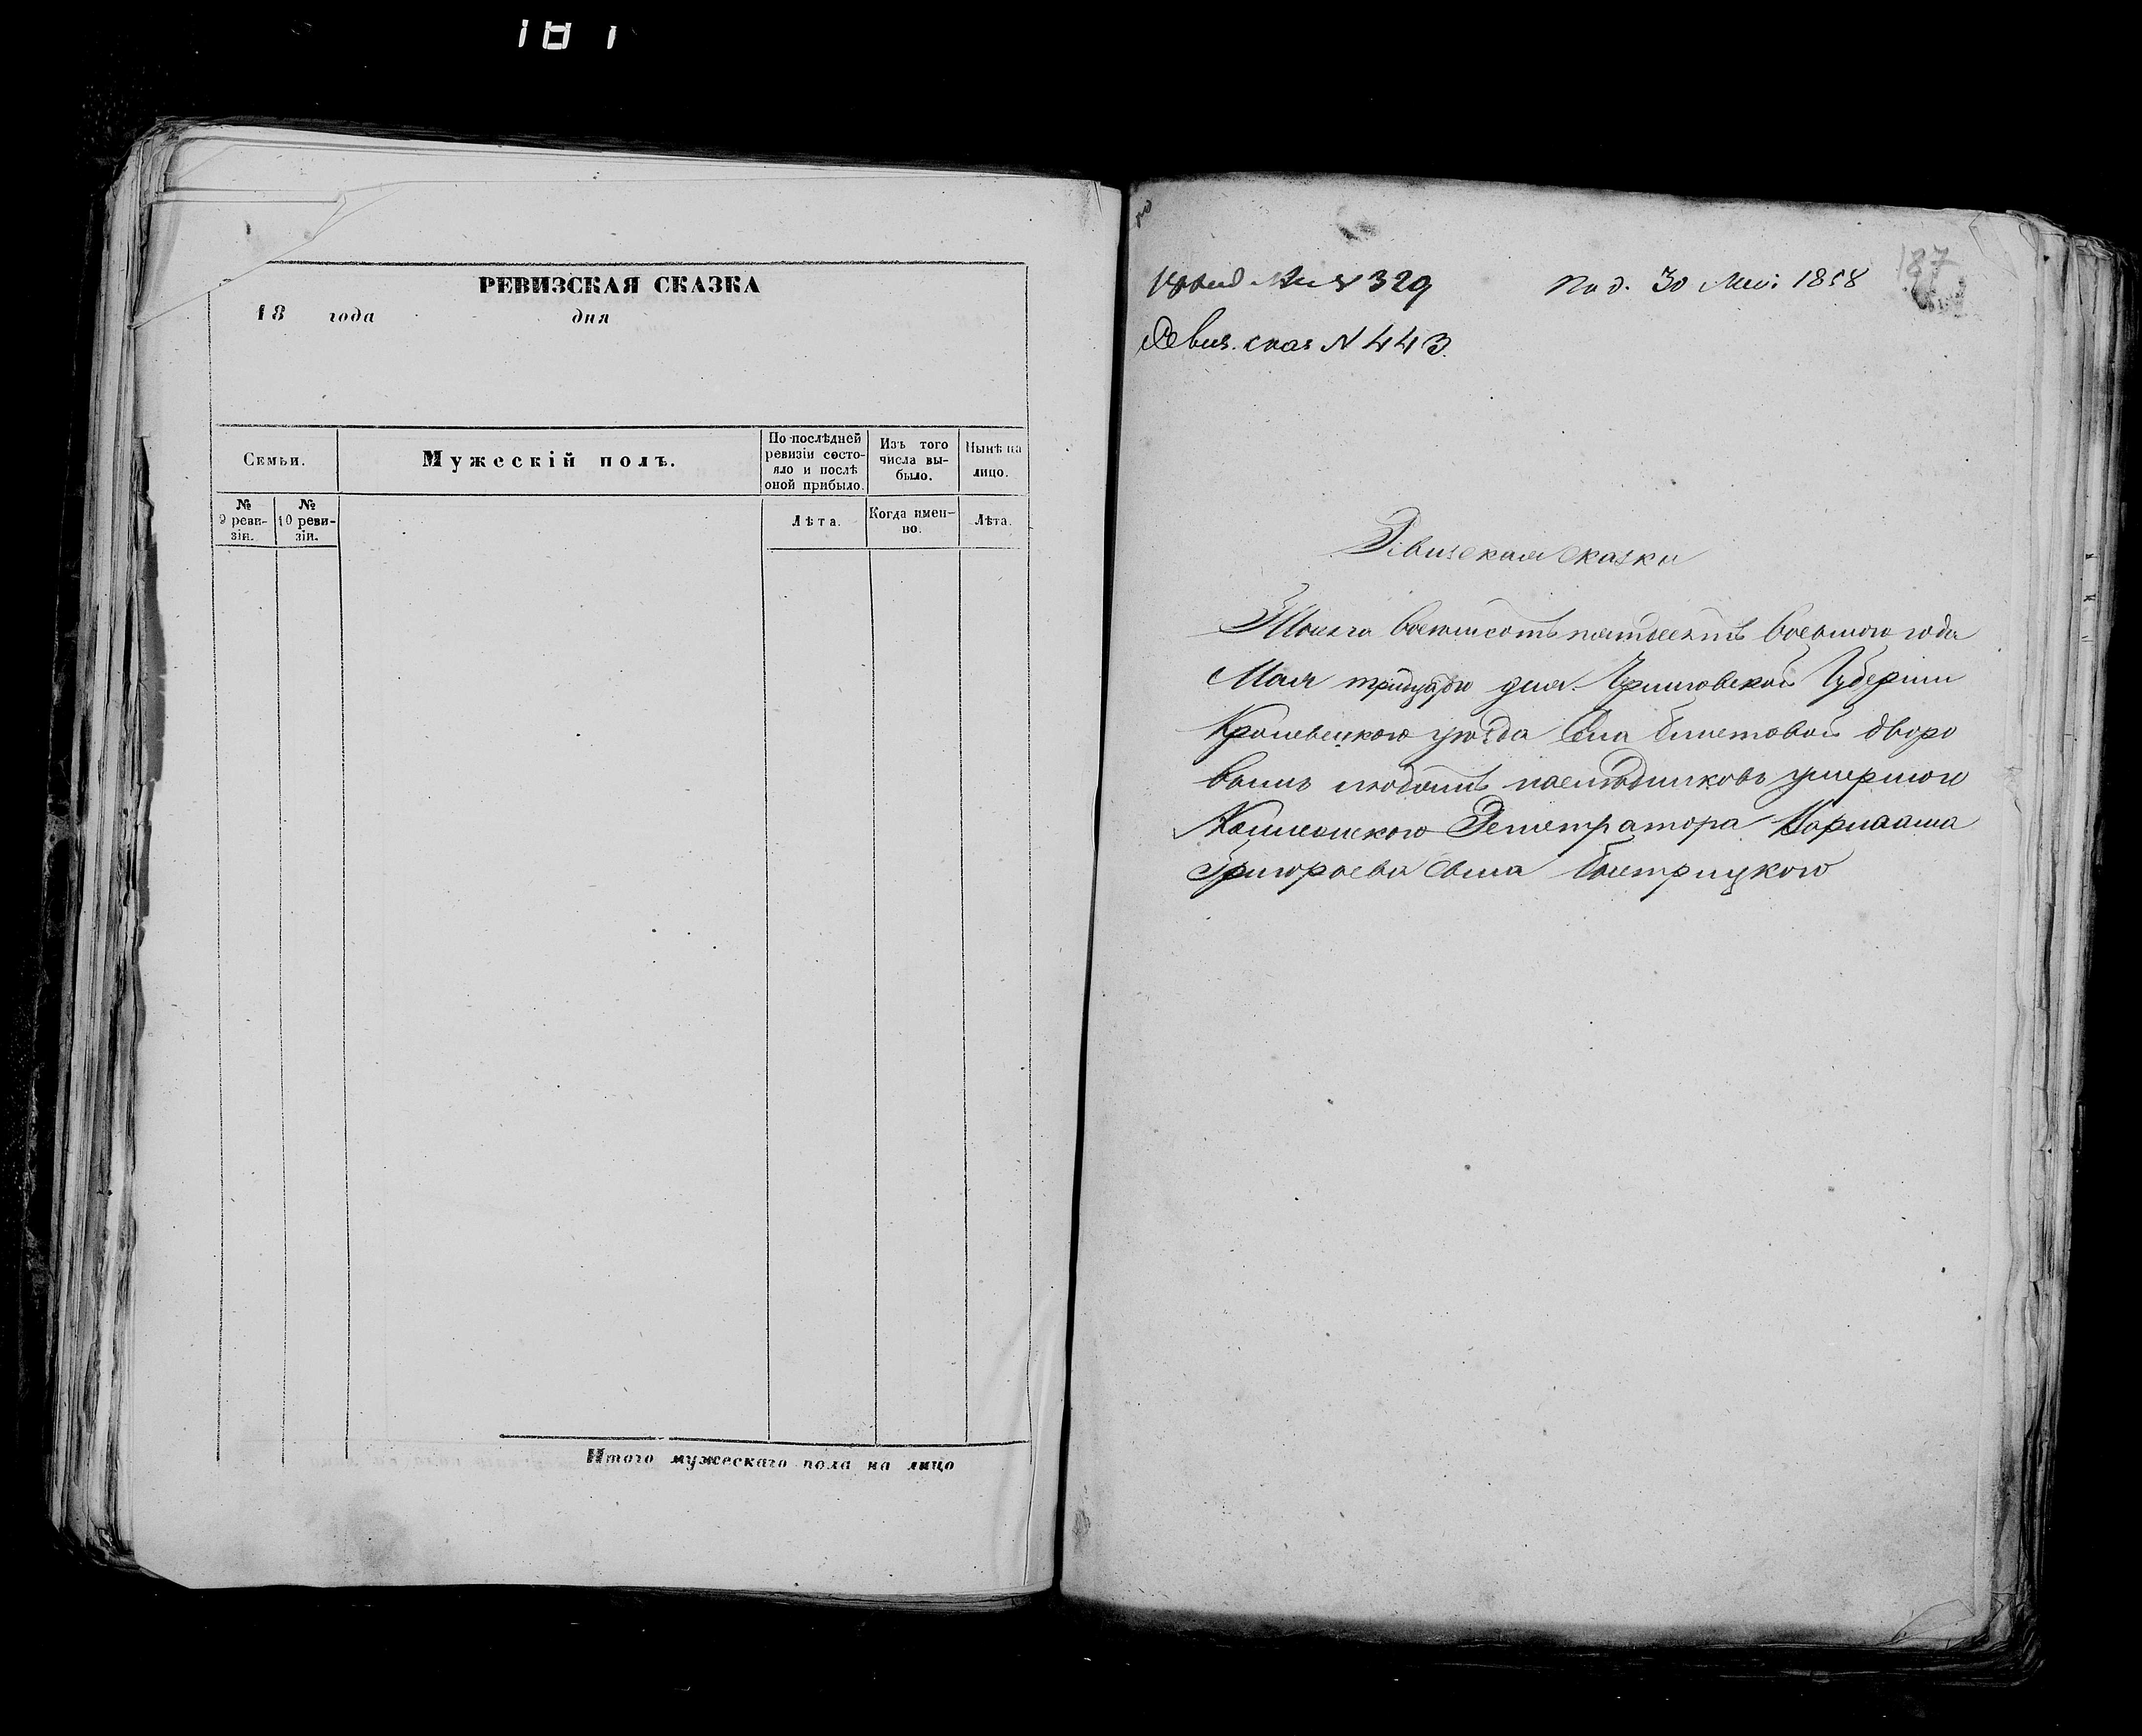 РЕВИЗСКАЯ СКАЗКА
18 года дня
Семьи.
Мужескій полъ.
По послѣдней
ревизіи состо-
яло и послѣ
оной прибыло.
Изъ того
числа вы-
было.
Нынѣ на
лицо.
№
9 реви-
зіи.
№
10 реви-
зіи.
Лѣта.
Когда имен-
но.
Лѣта.
Итого мужескаго пола на лицо
№ 329
Под. 30 Маі 1858
187
Ревиз. сказ N 443.
Ревизская сказка
Тысяча восемьсотъ пятдесятъ восьмого года
Мая тридцатого дня. Черниговской Губерніи
Кролевецкого уѣзда Села дворо
вымъ людямъ наслѣдниковъ умершого
Регистратора
Григорьева сына Быстрицкого